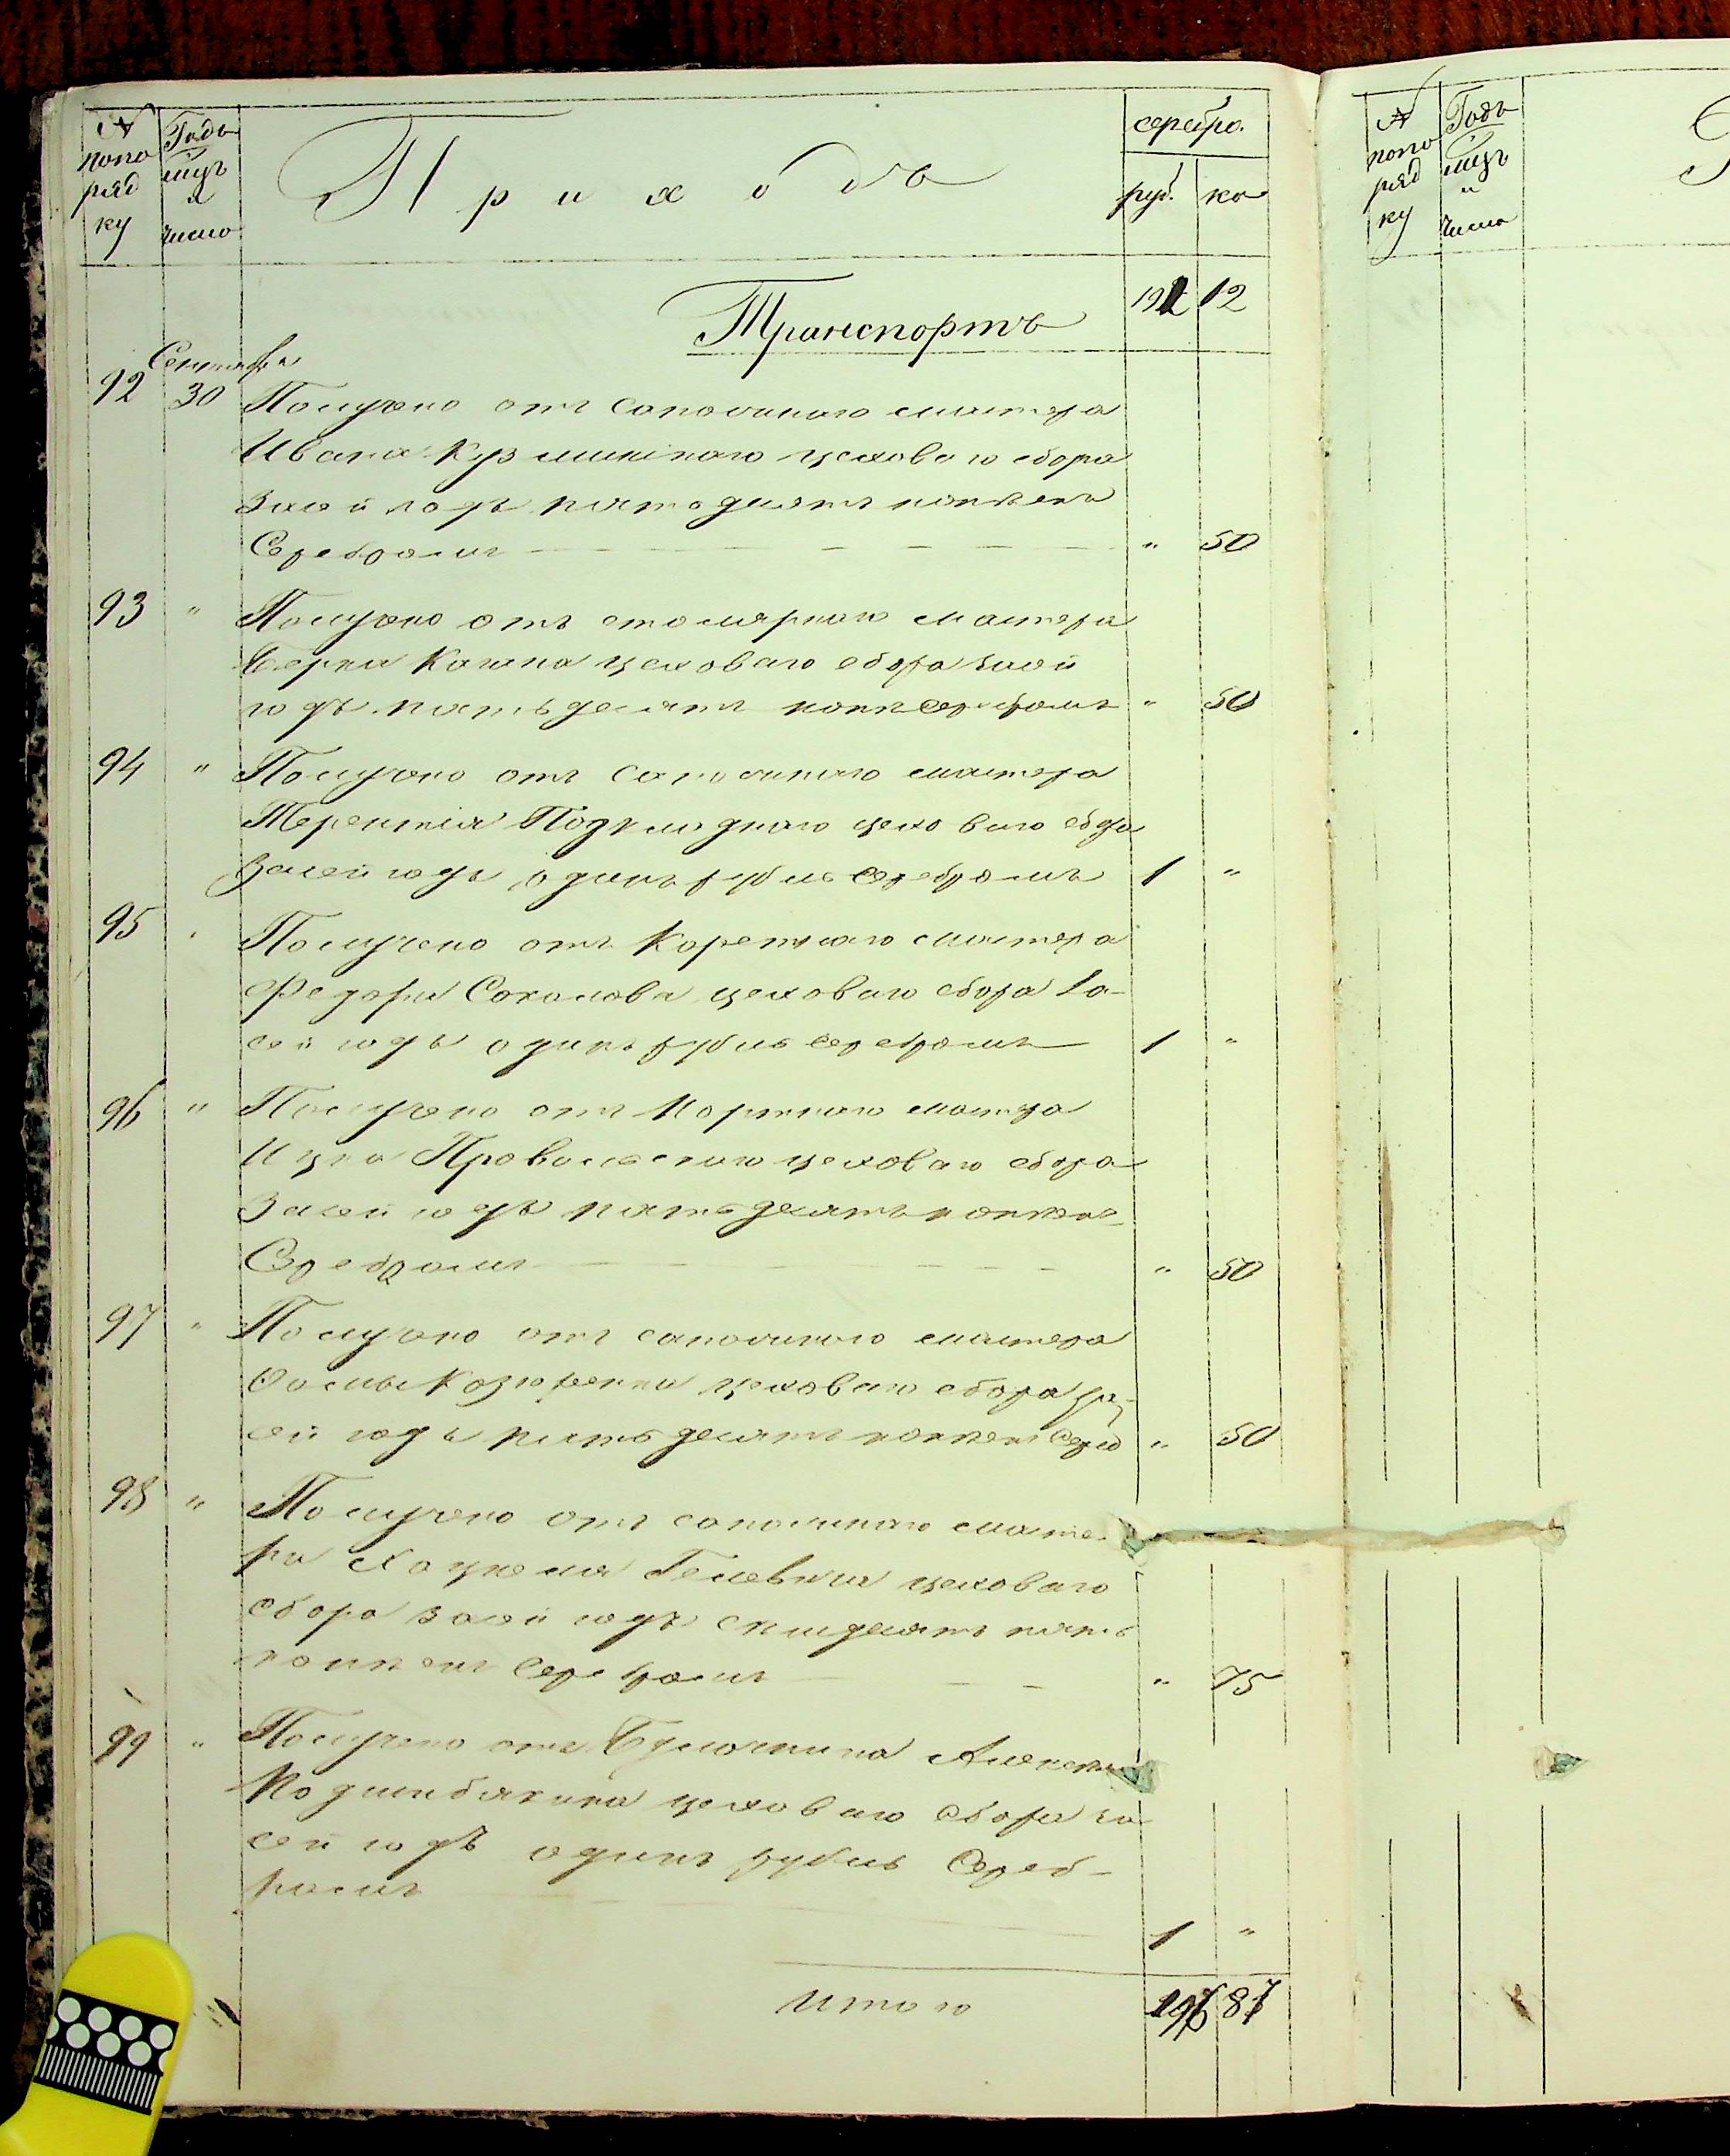 № Годъ Приходъ серебро.
попо мцъ
ряд и руб. ко
ку число
Транспортъ 191 12
Сентября
92 30 Получено отъ сапожнаго мастера
Ивана цеховаго сбора
за сей годъ пятьдесятъ копѣекъ
Серебромъ " 50
93 " Получено отъ столярнаго мастера
Берки Кагана цеховаго сбора за сей
годъ пятьдесятъ копѣ серебромъ " 50
94 " Получено отъ сапожнаго мастера
Терентія Подкладнаго цеховаго сбора
за сей годъ одинъ рубль серебромъ 1 "
95 " Получено отъ Каретнаго мастера
Федора Соколова цеховаго сбора за
сей годъ одинъ рубль серебромъ 1 "
96 " Получено отъ Портнаго мастера
Ицка цеховаго сбора
за сей годъ пятьдесятъ копѣекъ
Серебромъ " 50
97 " Получено отъ сапожного мастера
Фомы цеховаго сбора за
сей годъ пятьдесятъ копѣекъ сереб " 50
98 " Получено отъ сапожнаго масте-
ра Хацкеля цеховаго
сбора за сей годъ семьдесятъ пять
копѣекъ серебромъ " 75
99 " Получено отъ Булочника Алексѣя
цеховаго сбора за
сей годъ одинъ рубль Сереб-
ромъ
1 "
Итого 196 87
№ Годъ
попо мцъ
ряд и
ку число